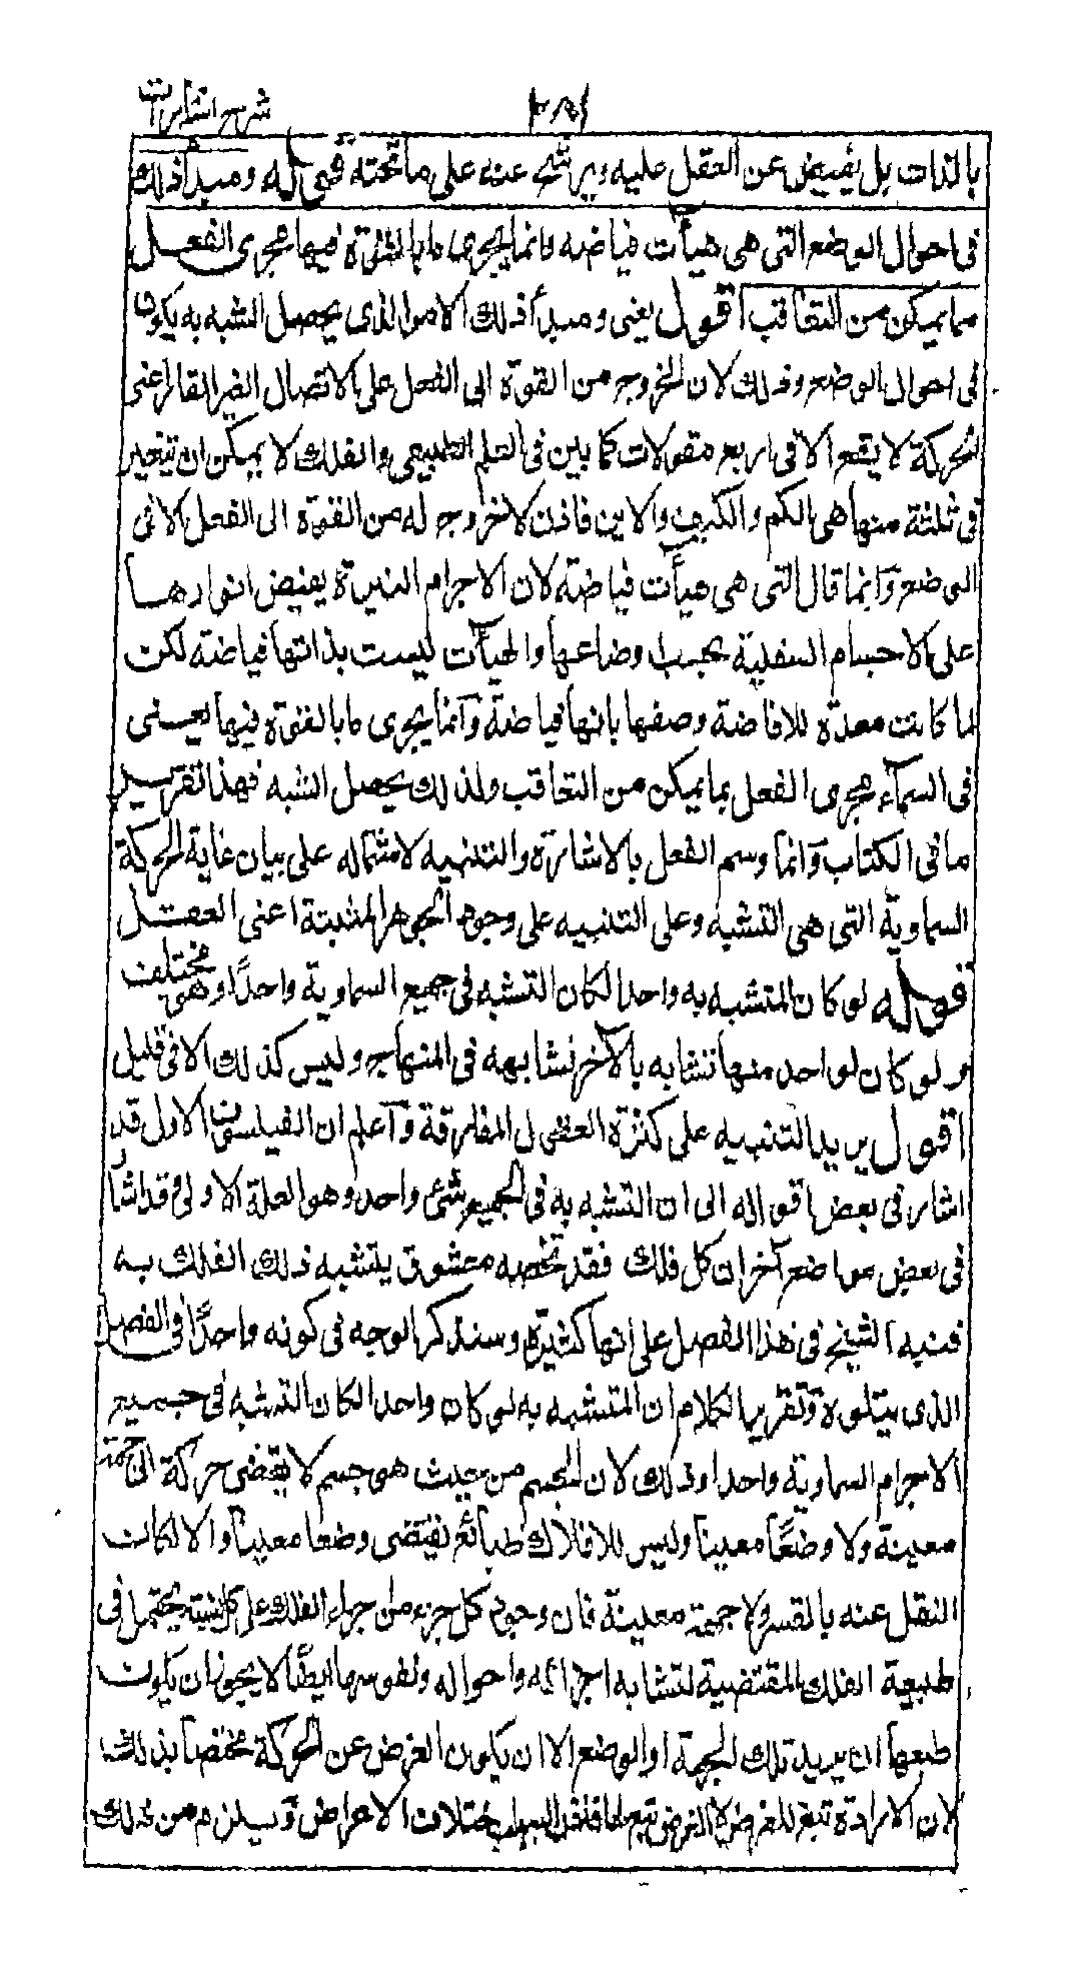 شرح اشارات
بالذات بل يفيض عن العقل عليه ويرشح عنه على ما تحته قوله ومبدأ ذلك
فى احوال الوضع التى هى هيآت فياضه وانما يجرى ما بالقوة فيها مجرى الفعل
مما يمكن من التعاقب اقول يعنى ومبدأ ذلك الامر الذى يحصل الشبه به يكون
فى احوال الوضع وذلك لان الخروج من القوة الى الفعل على الاتصال الغير القار اعنى
الحركة لا يقع الا فى اربع مقولات كما بين فى العلم الطبيعى والفلك لا يمكن ان يتغير
فى ثلثة منها هى الكم والكيف والاين فاذن لا خروج له من القوة الى الفعل الا فى
الوضع وانما قال التى هى هيآت فياضة لان الاجرام النيرة يفيض انوارها
على الاجسام السفلية بحسب اوضاعها والهيآت ليست بذاتها فياضة لكن
لما كانت معدة للافاضة وصفها بانها فياضة وانما يجرى ما بالقوة فيها يعنى
فى السمآء مجرى الفعل بما يمكن من التعاقب ولذلك يحصل الشبه فهذا تقرير
ما فى الكتاب وانما وسم الفصل بالاشارة والتنبيه لاشتماله على بيان غاية الحركة
السماوية التى هى التشبه وعلى التنبيه على وجود الجوهر المثبتة اعنى العقل
قوله لو كان المتشبه به واحدا لكان التشبه فى جميع السماوية واحدًا وهى مختلف
ولو كان لواحد منها تشابه بالآخر لشابهه فى المنهاج وليس كذلك الا فى قليل
اقول يريد التنبيه على كثرة العقول المفارقة وآعلم ان الفيلسوف الاول قد
اشار فى بعض اقواله الى ان التشبه به فى الجميع شئ واحد وهو العلة الاولى وقد اشار
فى بعض مواضع آخر ان كل فلك فقد تخصه معشوق يتشبه ذلك الفلك به
فنبه الشيخ فى هذا الفصل على انها كثيرة وسنذكر الوجه فى كونه واحدًا فى الفصل
الذى يتلوه وتقرير الكلام ان المتشبه به لو كان واحدا لكان التشبه فى جميع
الاجرام السماوية واحدا وذلك لان الجسم من حيث هو جسم لا يقتضى حركة الى جهة
معينة ولا وضعًا معينا وليس للافلاك طبائع يقتضى وضعا معينا والا لكانت
النقل عنه بالقسر ولا جهة معينة فان وجود كل جزء من اجزاء الفلك على كل نسبة يحتمل فى
طبيعة الفلك المقتضية لتشابه اجزائه واحواله ونفوسها ايضًا لا يجوز ان يكون
طبعها ان يريد تلك الجهة او الوضع الا ان يكون الغرض عن الحركة مختصا بذلك
لان الارادة تبع للغرض لا الغرض تبع لها فاذن السبب اختلاف الاغراض ويلزم من ذلك